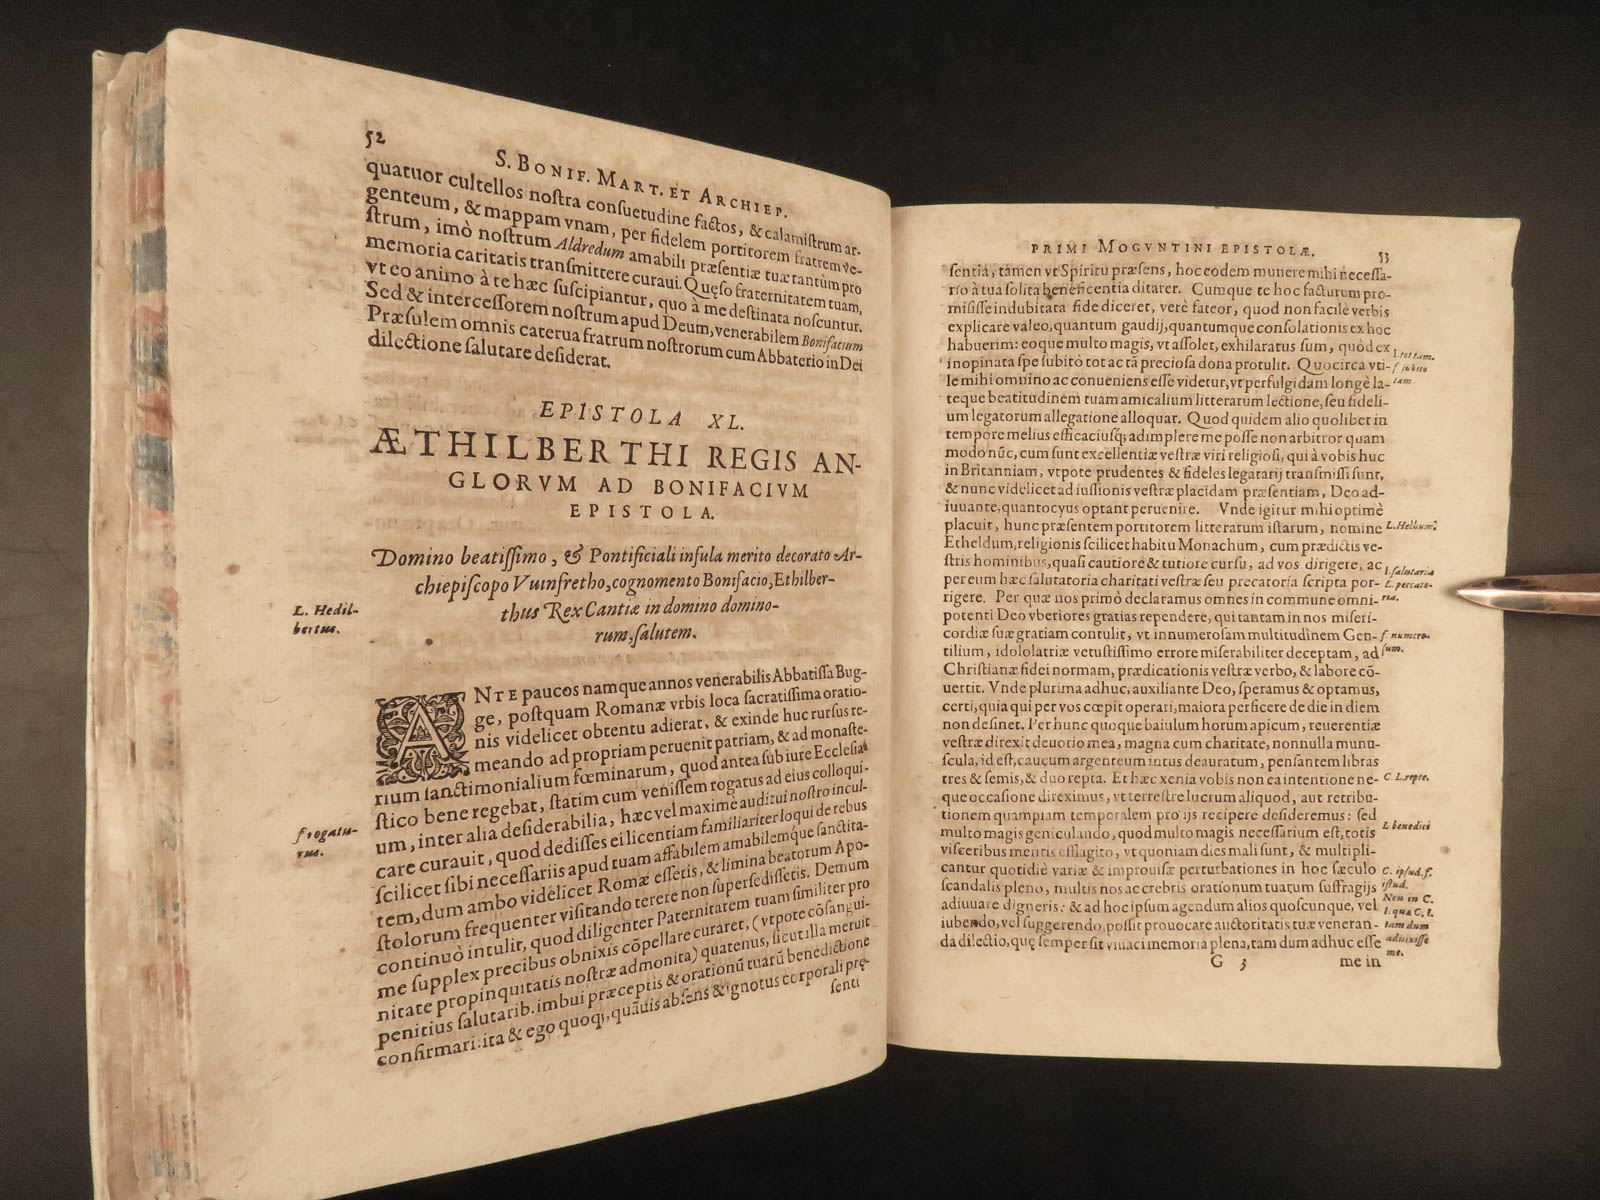 52
S. BONIF. MART. ET ARCHIEP.
quatuor cultellos noſtra conſuetudine factos, & calamiſtrum ar-
genteum, & mappam vnam, per fidelem portitorem fratrem ve-
ſtrum, imò noſtrum Aldredum amabili præſentiæ tuæ tantùm pro
memoria caritatis tranſmittere curaui. Quęſo fraternitatem tuam,
vt eo animo à te hæc ſuſcipiantur, quo à me deſtinata noſcuntur.
Sed & interceſſorem noſtrum apud Deum, venerabilem Bonifacium
Præſulem omnis caterua fratrum noſtrorum cum Abbaterio in Dei
dilectione ſalutare deſiderat.
EPISTOLA XL.
ÆTHILBERTHI REGIS AN-
GLORVM AD BONIFACIVM
EPISTOLA.
Domino beatiſſimo, & Pontificiali inſula merito decorato Ar-
chiepiſcopo Vuinfretho, cognomento Bonifacio, Ethilber-
thus Rex Cantiæ in domino domino-
rum, ſalutem.
L. Hedil-
bertus.
ANTE paucos namque annos venerabilis Abbatiſſa Bug-
ge, poſtquam Romanæ vrbis loca ſacratiſſima oratio-
nis videlicet obtentu adierat, & exinde huc rurſus re-
meando ad propriam peruenit patriam, & ad monaſte-
rium ſanctimonialium fœminarum, quod antea ſub iure Eccleſia-
ſtico bene regebat, ſtatim cum veniſſem rogatus ad eius colloqui-
um, inter alia deſiderabilia, hæc vel maximè auditui noſtro incul-
care curauit, quod dediſſes ei licentiam familiariter loqui de rebus
ſcilicet ſibi neceſſariis apud tuam affabilem amabilemque ſanctita-
tem, dum ambo videlicet Romæ eſſetis, & limina beatorum Apo-
ſtolorum frequenter viſitando terere non ſuperſediſſetis. Demum
continuò intulit, quod diligenter Paternitatem tuam ſimiliter pro
me ſupplex precibus obnixis cõpellare curaret, (vtpote cõſangui-
nitate propinquitatis noſtræ admonita) quatenus, ſicut illa meruit
penitius ſalutarib. imbui præceptis & orationũ tuarũ benedictione
confirmari: ita & ego quoq;, quãuis abſens & ignotus corporali prę-
ſenti
ſ rogatu-
rus.
PRIMI MOGVNTINI EPISTOLÆ. 53
ſentiâ, tamen vt Spiritu præſens, hoc eodem munere mihi neceſſa-
rio à tua ſolita beneficentia ditaret. Cumque te hoc facturum pro-
miſiſſe indubitata fide diceret, verè fateor, quod non facilè verbis
explicare valeo, quantum gaudij, quantumque conſolationis ex hoc
habuerim: eoque multo magis, vt aſſolet, exhilaratus ſum, quòd ex
inopinata ſpe ſubitò tot ac tã precioſa dona protulit. Quocirca vti-
le mihi omnino ac conueniens eſſe videtur, vt perfulgidam longè la-
teque beatitudinem tuam amicalium litterarum lectione, ſeu fideli-
um legatorum allegatione alloquar. Quod quidem alio quolibet in
tempore melius efficaciuſq; adimplere me poſſe non arbitror quam
modo nũc, cum ſunt excellentiæ veſtræ viri religioſi, qui à vobis huc
in Britanniam, vtpote prudentes & fideles legatarij tranſmiſſi ſunt,
& nunc videlicet ad iuſſionis veſtræ placidam præſentiam, Deo ad-
iuuante, quantocyus optant peruenire. Vnde igitur mihi optimè
placuit, hunc præſentem portitorem litterarum iſtarum, nomine
Etheldum, religionis ſcilicet habitu Monachum, cum prædictis ve-
ſtris hominibus, quaſi cautiore & tutiore curſu, ad vos dirigere, ac
per eum hæc ſalutatoria charitati veſtræ ſeu precatoria ſcripta por-
rigere. Per quæ nos primò declaramus omnes in commune omni-
potenti Deo vberiores gratias rependere, qui tantam in nos miſeri-
cordiæ ſuæ gratiam contulit, vt innumeroſam multitudinem Gen-
tilium, idololatriæ vetuſtiſſimo errore miſerabiliter deceptam, ad
Chriſtianæ fidei normam, prædicationis veſtræ verbo, & labore cõ-
uertit. Vnde plurima adhuc, auxiliante Deo, ſperamus & optamus,
certi, quia qui per vos cœpit operari, maiora perficere de die in diem
non deſinet. Per hunc quoque baiulum horum apicum, reuerentiæ
veſtræ direxit deuotio mea, magna cum charitate, nonnulla munu-
ſcula, id eſt, caucum argenteum intus deauratum, penſantem libras
tres & ſemis, & duo repta. Et hæc xenia vobis non ea intentione ne-
que occaſione direximus, vt terreſtre lucrum aliquod, aut retribu-
tionem quampiam temporalem pro ijs recipere deſideremus: ſed
multo magis geniculando, quod multo magis neceſſarium eſt, totis
viſceribus mentis efflagito, vt quoniam dies mali ſunt, & multipli-
cantur quotidie variæ & improuiſæ perturbationes in hoc ſæculo
ſcandalis pleno, multis nos ac crebris orationum tuarum ſuffragijs
adiuuare digneris: & ad hoc ipſum agendum alios quoſcunque, vel
iubendo, vel ſuggerendo, poſſit prouocare auctoritatis tuæ veneran-
da dilectio, quę ſemper ſit viuaci memoria plena, tam dum adhuc eſſe
G 3 me in
l. tot tam.
ſ ſubito
tam.
L. Helhum.
l. ſalutaria
L. peccato-
ria.
ſ. numero-
ſum.
C L. repte.
L. benedici
C. ipſud. ſ.
iſtud.
Non in C.
l. qua C. L.
tam dum
aduixiſſe
me.